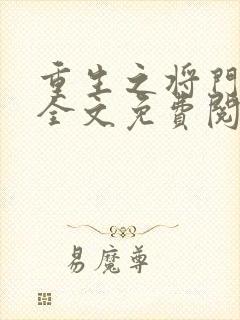 重生之将门
全文免費閱
易魔尊